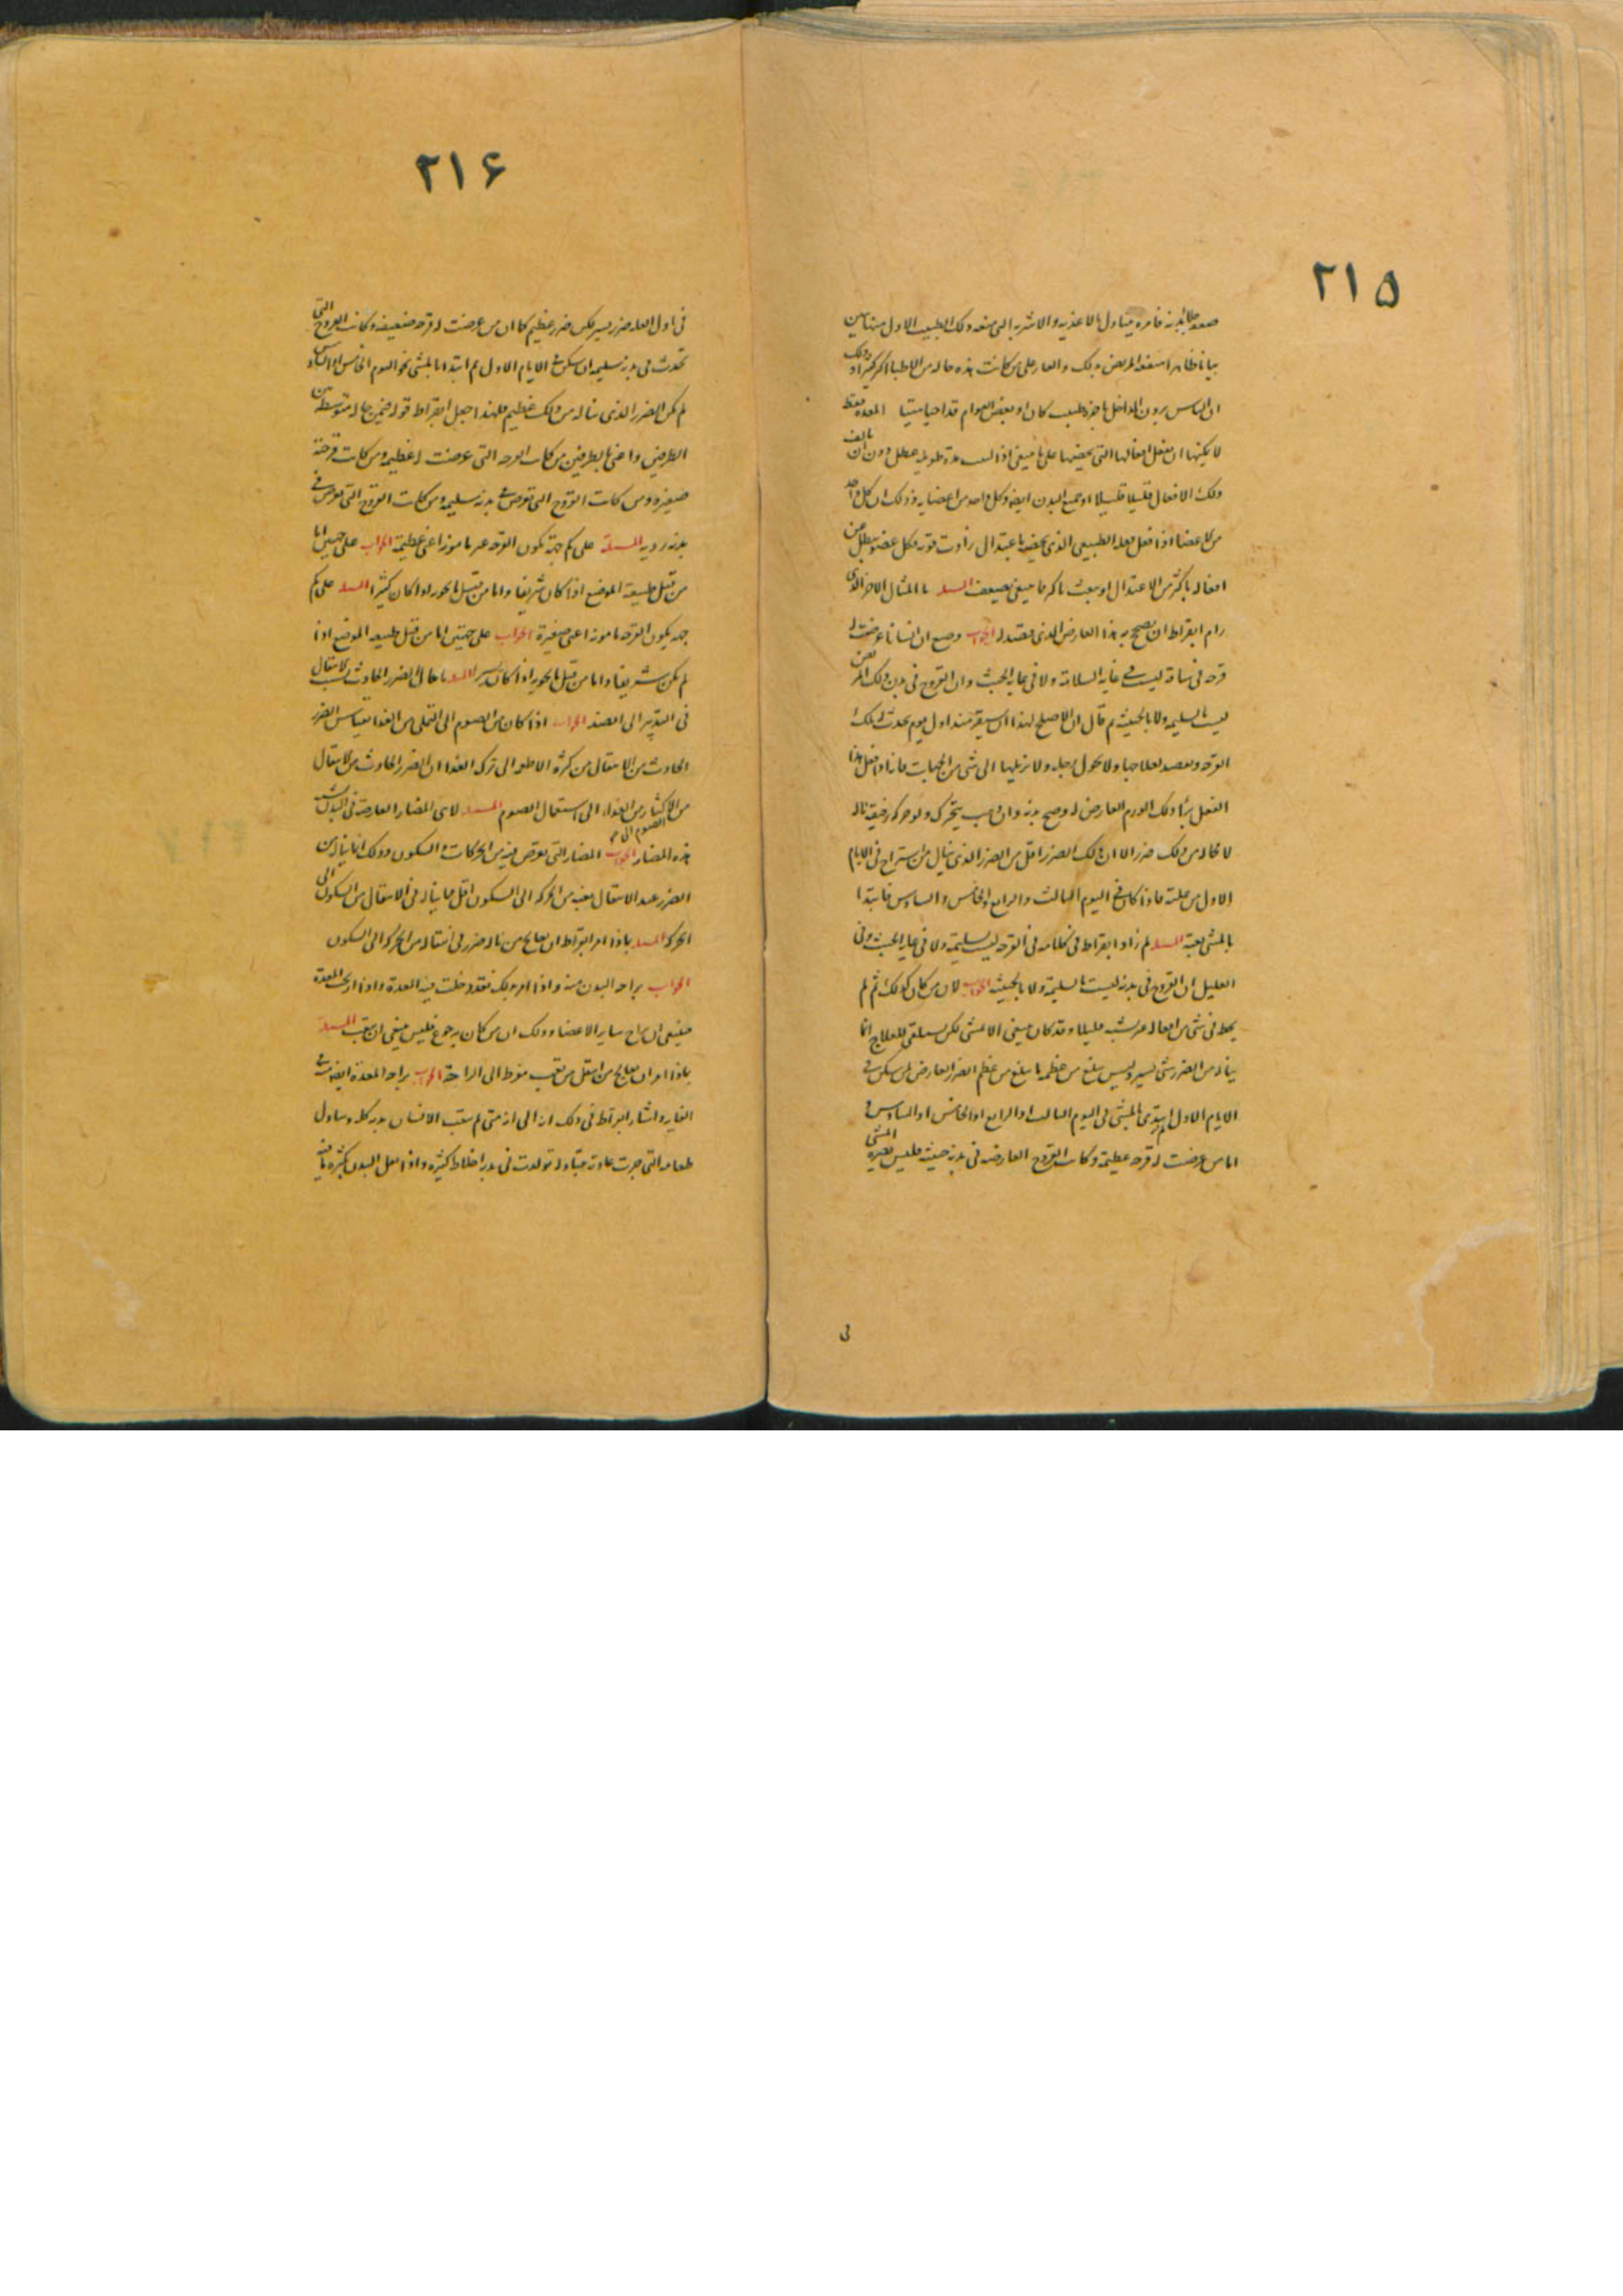 ٢١٥
فامره بتناول الاغذيه والاشربه التى منعه ذلك الطبيب الاول منها
بيانا ظاهرا المريض بذلك والعار على من كانت هذه حاله من الاطبا اكثر كثيرا وذلك
ان الناس يرون الداخل طبيب كان او بعض العوام قد احيا ميتا المعده فقط
لا يمكنها ان تفعل افعالها التى تخصها على ما ينبغى اذا لبثت مدة طويله تعطل دون ان تالف
ذلك الافعال قليلا قليلا او جميع البدن ايضا وكل واحد من اعضايه وذلك ان كل واحد
من الاعضا اذا فعل فعله الطبيعى الذى يخصه باعتدال زادت قوته وكل عضو يبطل من
افعاله باكثر من الاعتدال او يتعب باكثر مما ينبغى يضعف المسله ما المثال الاخر الذى
رام ابقراط ان يصحح به هذا العارض الذى قصد له الجواب وضع ان انسانا عرضت له
قرحه فى ساقه ليست فى غايه السلامة ولا فى غايه الخبث وان القروح فى بدن ذلك المر
ليست بالسليمه ولا بالخبيثه ثم قال ان الاصلح لهذا ان يستقر منذ اول يوم تحدث له تلك
القرحه ويقصد لعلاجها ولا يحول رجله ولا يزيلها الى شى من الجهات فانه اذا فعل هذا
الفعل برا ذلك الورم العارض له وصح بدنه وان ذهب يتحرك ولو حركه رفيقة ناله
لا محاله من ذلك ضرر الا ان ذلك الضرر اقل من الضرر الذى ينال من استراح فى الايام
الاول من علته فاذا كان فى اليوم الثالث والرابع والخامس والسادس فابتدا
بالمشى بغتة المسله لم زاد ابقراط فى كلامه فى القرحه ليست سليمة ولا فى غايه الخبث وفى
العليل ان القروح فى بدنه ليست بالسليمة ولا بالخبيثه الجواب لان من كان كذلك ثم لم
يخط فى شى من افعاله قليلا وقد كان ينبغى الا يمشى لكن يستلقى للعلاج انما
يناله من الضرر شى يسير وليس يبلغ من عظمه ما يبلغ من عظم الضرر العارض لمن سكن فى
الايام الاول ثم ابتدى بالمشى فى اليوم الثالث او الرابع او الخامس او السادس
اما من عرضت له قرحه عظيمة وكانت القروح العارضه فى بدنه خبيثه فليس يضره المشى
فى
٢١۶
فى اول العله ضرر يسير لكن ضرر عظيم كما ان من عرضت له قرحه ضعيفه وكانت القروح التى
تحدث فى بدنه سليمه ان سكن فى الايام الاول ثم ابتدا بالمشى نحو اليوم الخامس او السادس
لم يكن الضرر الذى يناله من ذلك عظيم فلهذا جعل ابقراط قوله فيمن حاله متوسطة بين
الطرفين واعنى بالطرفين من كانت القرحه التى عرضت له عظيمه ومن كانت قرحته
صغيره ومن كانت القروح التى تعرض فى بدنه سليمه ومن كانت القروح التى تعرض فى
بدنه رديه المسلة على كم جهة تكون القرحه اعنى عظيمة الجواب على جهتين اما
من قبل طبيعة الموضع اذا كان شريفا واما من قبل اذا كان كثيرا المسله على كم
جهه يكون القرحه اعنى صغيرة الجواب على جهتين اما من قبل طبيعه الموضع اذا
لم يكن شريفا واما من قبل اذا كان يسيرا المسله ما حال الضرر الحادث بسبب الانتقال
فى التدبير الى الضد الجواب اذا كان من الصوم الى التملى من الغذا بقياس الضرر
الحادث من الانتقال من كثرة الاطعمه الى تركه الغذا ان الضرر الحادث من الانتقال
من الاكثار من الغذاء الى استعمال الصوم المسله لاى المضار العارضة فى البدن تشبه
هذه المضار الجواب المضار التى تعرض فيه من الحركات والسكون وذلك انما يناله من
الضرر عند الانتقال بغته من الحركه الى السكون اقل مما يناله فى الانتقال من السكون الى
الحركه المسله بماذا امر ابقراط ان يعالج من ناله ضرر فى انتقاله من الحركه الى السكون
الجواب براحه البدن منه واذا امر بذلك فقد دخلت فيه المعدة واذا اريحت المعدة
فينبغى ان يراح ساير الاعضا وذلك ان من كان به جوع فليس ينبغى ان يتعب المسلة
بماذا امر ان يعالج من انتقل من تعب مفرط الى الراحة الجواب براحه المعدة ايضا فى
الغايه واشار ابقراط فى ذلك ان الى انه متى لم يتعب الانسان بدنه كله وتناول
طعامه التى جرت عادته بتناوله تولدت فى بدنه اخلاط كثيره واذا ثقل البدن بكثرة ما فيه